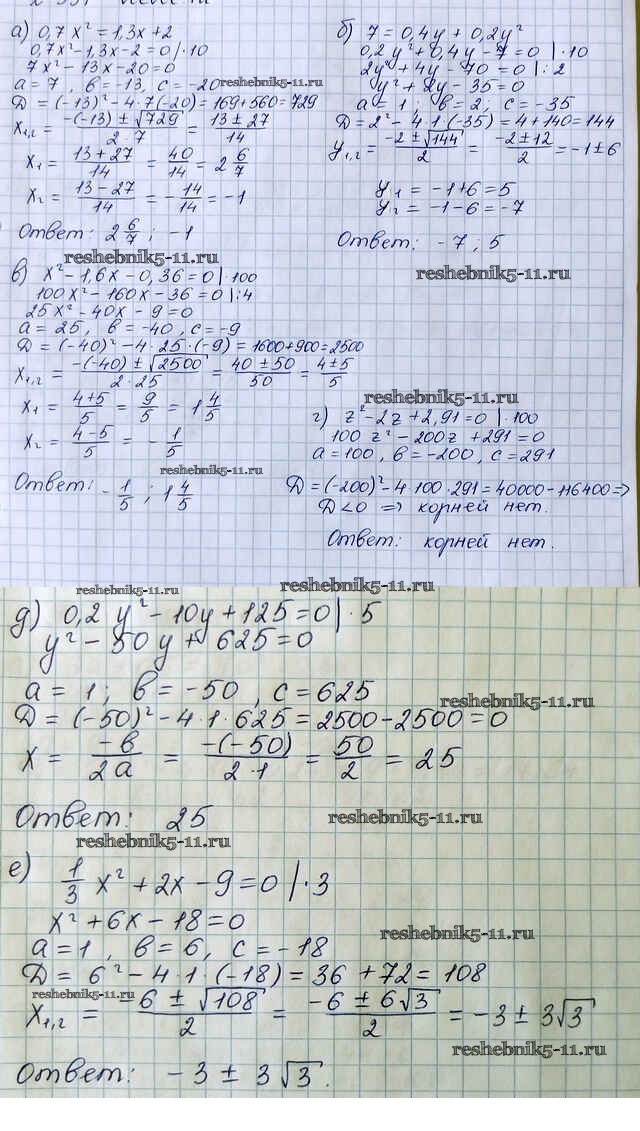 а) 0,7x² = 1,3x + 2
0,7x² - 1,3x - 2 = 0 | · 10
7x² - 13x - 20 = 0
a = 7, в = -13, c = -20
D = (-13)² - 4 · 7(-20) = 169 + 560 = 729
x₁,₂ = -(-13) ± √729 / 2 · 7 = 13 ± 27 / 14
x₁ = 13 + 27 / 14 = 40/14 = 2 6/7
x₂ = 13 - 27 / 14 = - 14/14 = -1
Ответ: 2 6/7 ; -1
reshebnik5-11.ru
б) 7 = 0,4y + 0,2y²
0,2y² + 0,4y - 7 = 0 | · 10
2y² + 4y - 70 = 0 | : 2
y² + 2y - 35 = 0
a = 1; в = 2; c = -35
D = 2² - 4 · 1 · (-35) = 4 + 140 = 144
y₁,₂ = -2 ± √144 / 2 = -2 ± 12 / 2 = -1 ± 6
y₁ = -1 + 6 = 5
y₂ = -1 - 6 = -7
Ответ: -7 ; 5
reshebnik5-11.ru
в) x² - 1,6x - 0,36 = 0 | · 100
100x² - 160x - 36 = 0 | : 4
25x² - 40x - 9 = 0
a = 25, в = -40, c = -9
D = (-40)² - 4 · 25 · (-9) = 1600 + 900 = 2500
x₁,₂ = -(-40) ± √2500 / 2 · 25 = 40 ± 50 / 50 = 4 ± 5 / 5
x₁ = 4 + 5 / 5 = 9/5 = 1 4/5
x₂ = 4 - 5 / 5 = - 1/5
reshebnik5-11.ru
Ответ: - 1/5 ; 1 4/5
reshebnik5-11.ru
г) z² - 2z + 2,91 = 0 | · 100
100z² - 200z + 291 = 0
a = 100, в = -200, c = 291
D = (-200)² - 4 · 100 · 291 = 40000 - 116400 =>
D < 0 => корней нет.
Ответ: корней нет.
reshebnik5-11.ru
reshebnik5-11.ru
д) 0,2y² - 10y + 125 = 0 | · 5
y² - 50y + 625 = 0
a = 1; в = -50, c = 625
reshebnik5-11.ru
D = (-50)² - 4 · 1 · 625 = 2500 - 2500 = 0
x = -в / 2a = -(-50) / 2 · 1 = 50/2 = 25
Ответ: 25
reshebnik5-11.ru
reshebnik5-11.ru
е) 1/3 x² + 2x - 9 = 0 | · 3
x² + 6x - 18 = 0
reshebnik5-11.ru
a = 1, в = 6, c = -18
D = 6² - 4 · 1 · (-18) = 36 + 72 = 108
reshebnik5-11.ru
x₁,₂ = -6 ± √108 / 2 = -6 ± 6√3 / 2 = -3 ± 3√3
reshebnik5-11.ru
Ответ: -3 ± 3√3.